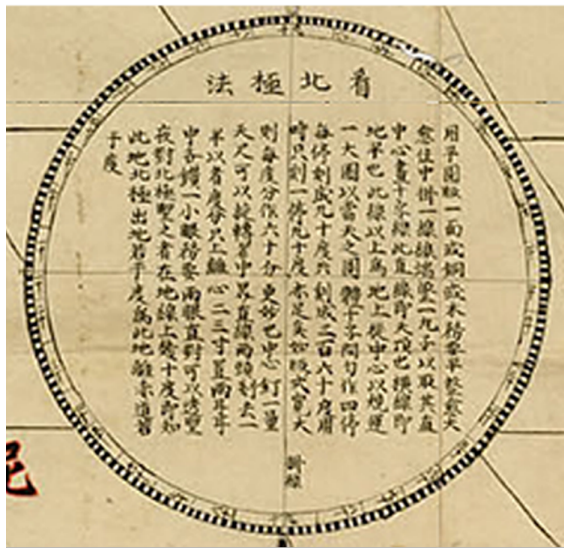 看北極法
用平圓版一面或銅或木務要平整愈大
愈佳中掛一線線端墜一丸子以取其直
中心畫十字線此直線即天頂也橫線即
地平也此線以上為地上從中心以規運
一大圈以當天之圓體十字間勻作四停
每停刻成九十度共刻成三百六十度
時只刻一停九十度亦足矣如版式寬大
則每度分作六十分更妙也中心釘一量
天尺可以旋轉當中界直線兩頭削去一
半以看度分尺上離心二三寸置兩耳耳
中各鑽一小眼務要兩眼直對可以透望
夜對北極望之看在地線上幾十度即知
此地北極出地若干度為此地離赤道若
干度
掛線